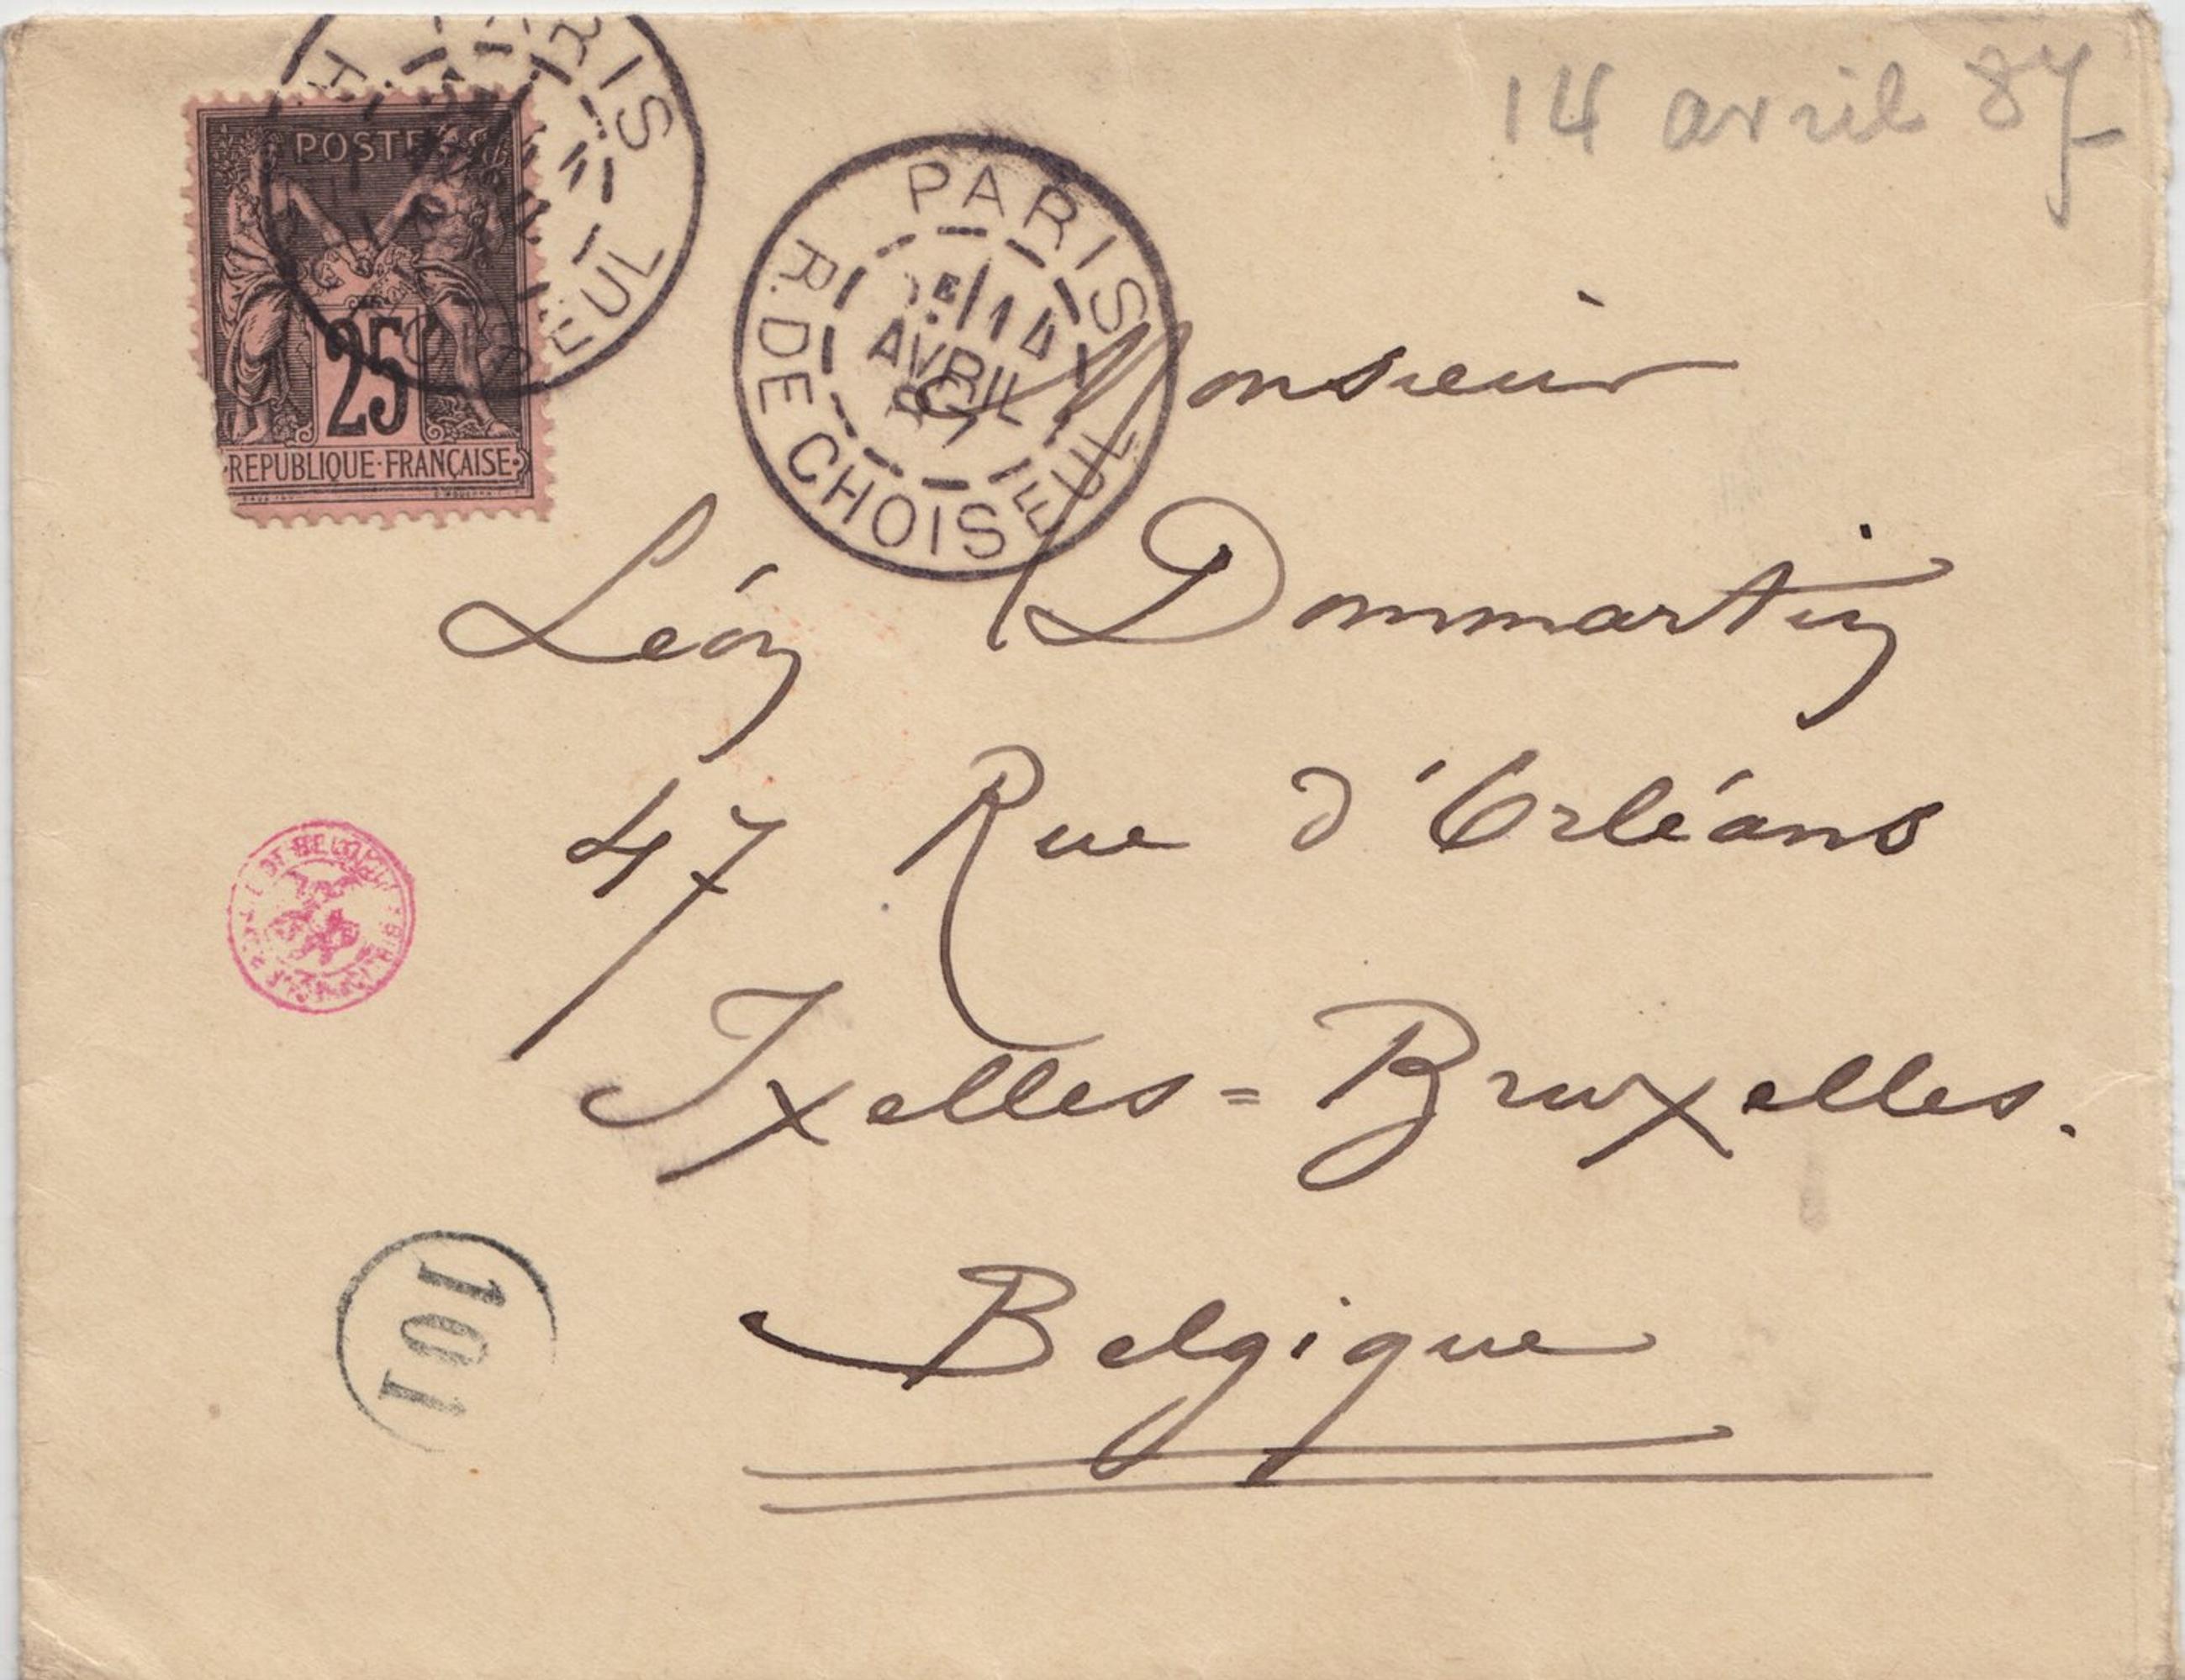 14 avril 87
POSTES
25
REPUBLIQUE·FRANÇAISE
PARIS
R. DE CHOISEUL
14
AVRIL
87
Monsieur
Léon Dommartin
47 Rue d'Orléans
Ixelles = Bruxelles.
Belgique
101